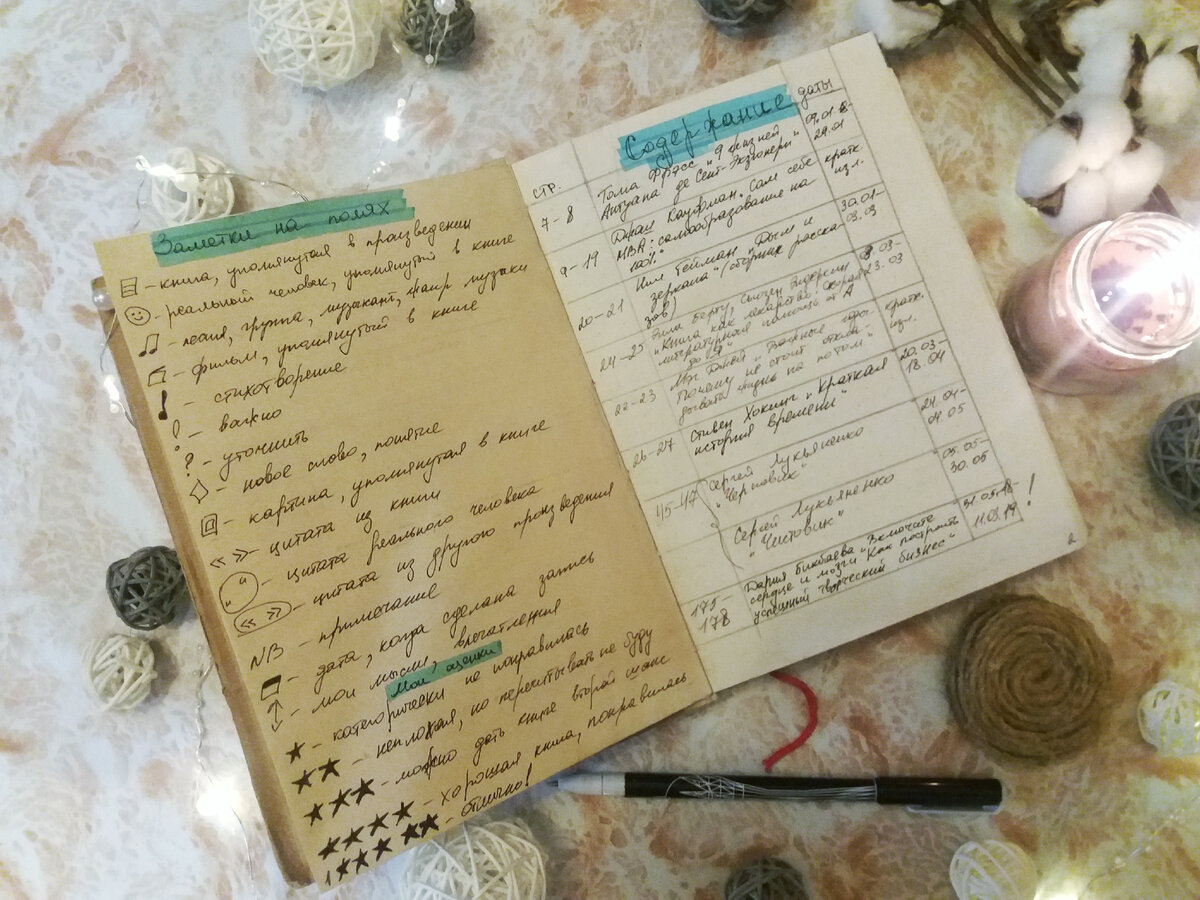 Заметки на полях
- книга, упомянутая в произведении
- реальный человек, упомянутый в книге
- песня, группа, музыкант, жанр музыки
- фильм, упомянутый в книге
- стихотворение
! - важно
? - уточнить
- новое слово, понятие
- картина, упомянутая в книге
« » - цитата из книги
" " - цитата реального человека
« » - цитата из другого произведения
NB - примечание
- дата, когда сделана запись
- мои мысли, впечатления
Мои оценки
★ - категорически не понравилась
★★ - неплохая, но перечитывать не буду
★★★ - можно дать книге второй шанс
★★★★ - хорошая книга, понравилась
★★★★★ - отлично!
Содержание
стр.
даты
7-8
Тома Фрэсс "9 жизней
Антуана де Сент-Экзюпери"
09.01.18-
29.01
9-19
Джош Кауфман. Сам себе
MBA: самообразование на
100%"
кратк
изл.
20-21
Нил Гейман "Дым и
зеркала" (сборник расска-
зов)
30.01-
03.03
24-25
Элла Берту, Сьюзен Элдеркин
"Книга как лекарство. Скорая
литературная помощь от А
до Я"
03.03-
23.03
22-23
Мэг Джей "Важные годы.
Почему не стоит откла-
дывать жизнь на потом"
кратк.
изл.
26-27
Стивен Хокинг "Краткая
история времени"
20.03-
18.04
45-47
Сергей Лукьяненко
"Черновик"
24.04-
04.05
Сергей Лукьяненко
"Чистовик"
05.05-
30.05
175-
178
Дария Бикбаева "Включите
сердце и мозги. Как построить
успешный творческий бизнес"
31.05.18-
11.03.19
!
2